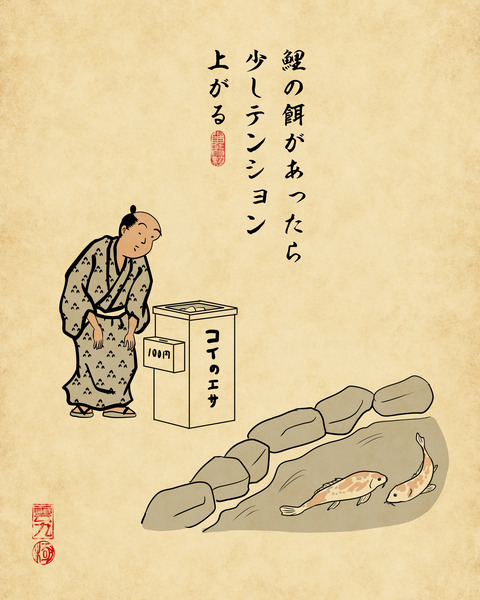 鯉の餌があったら
少しテンション
上がる
100円
コイのエサ